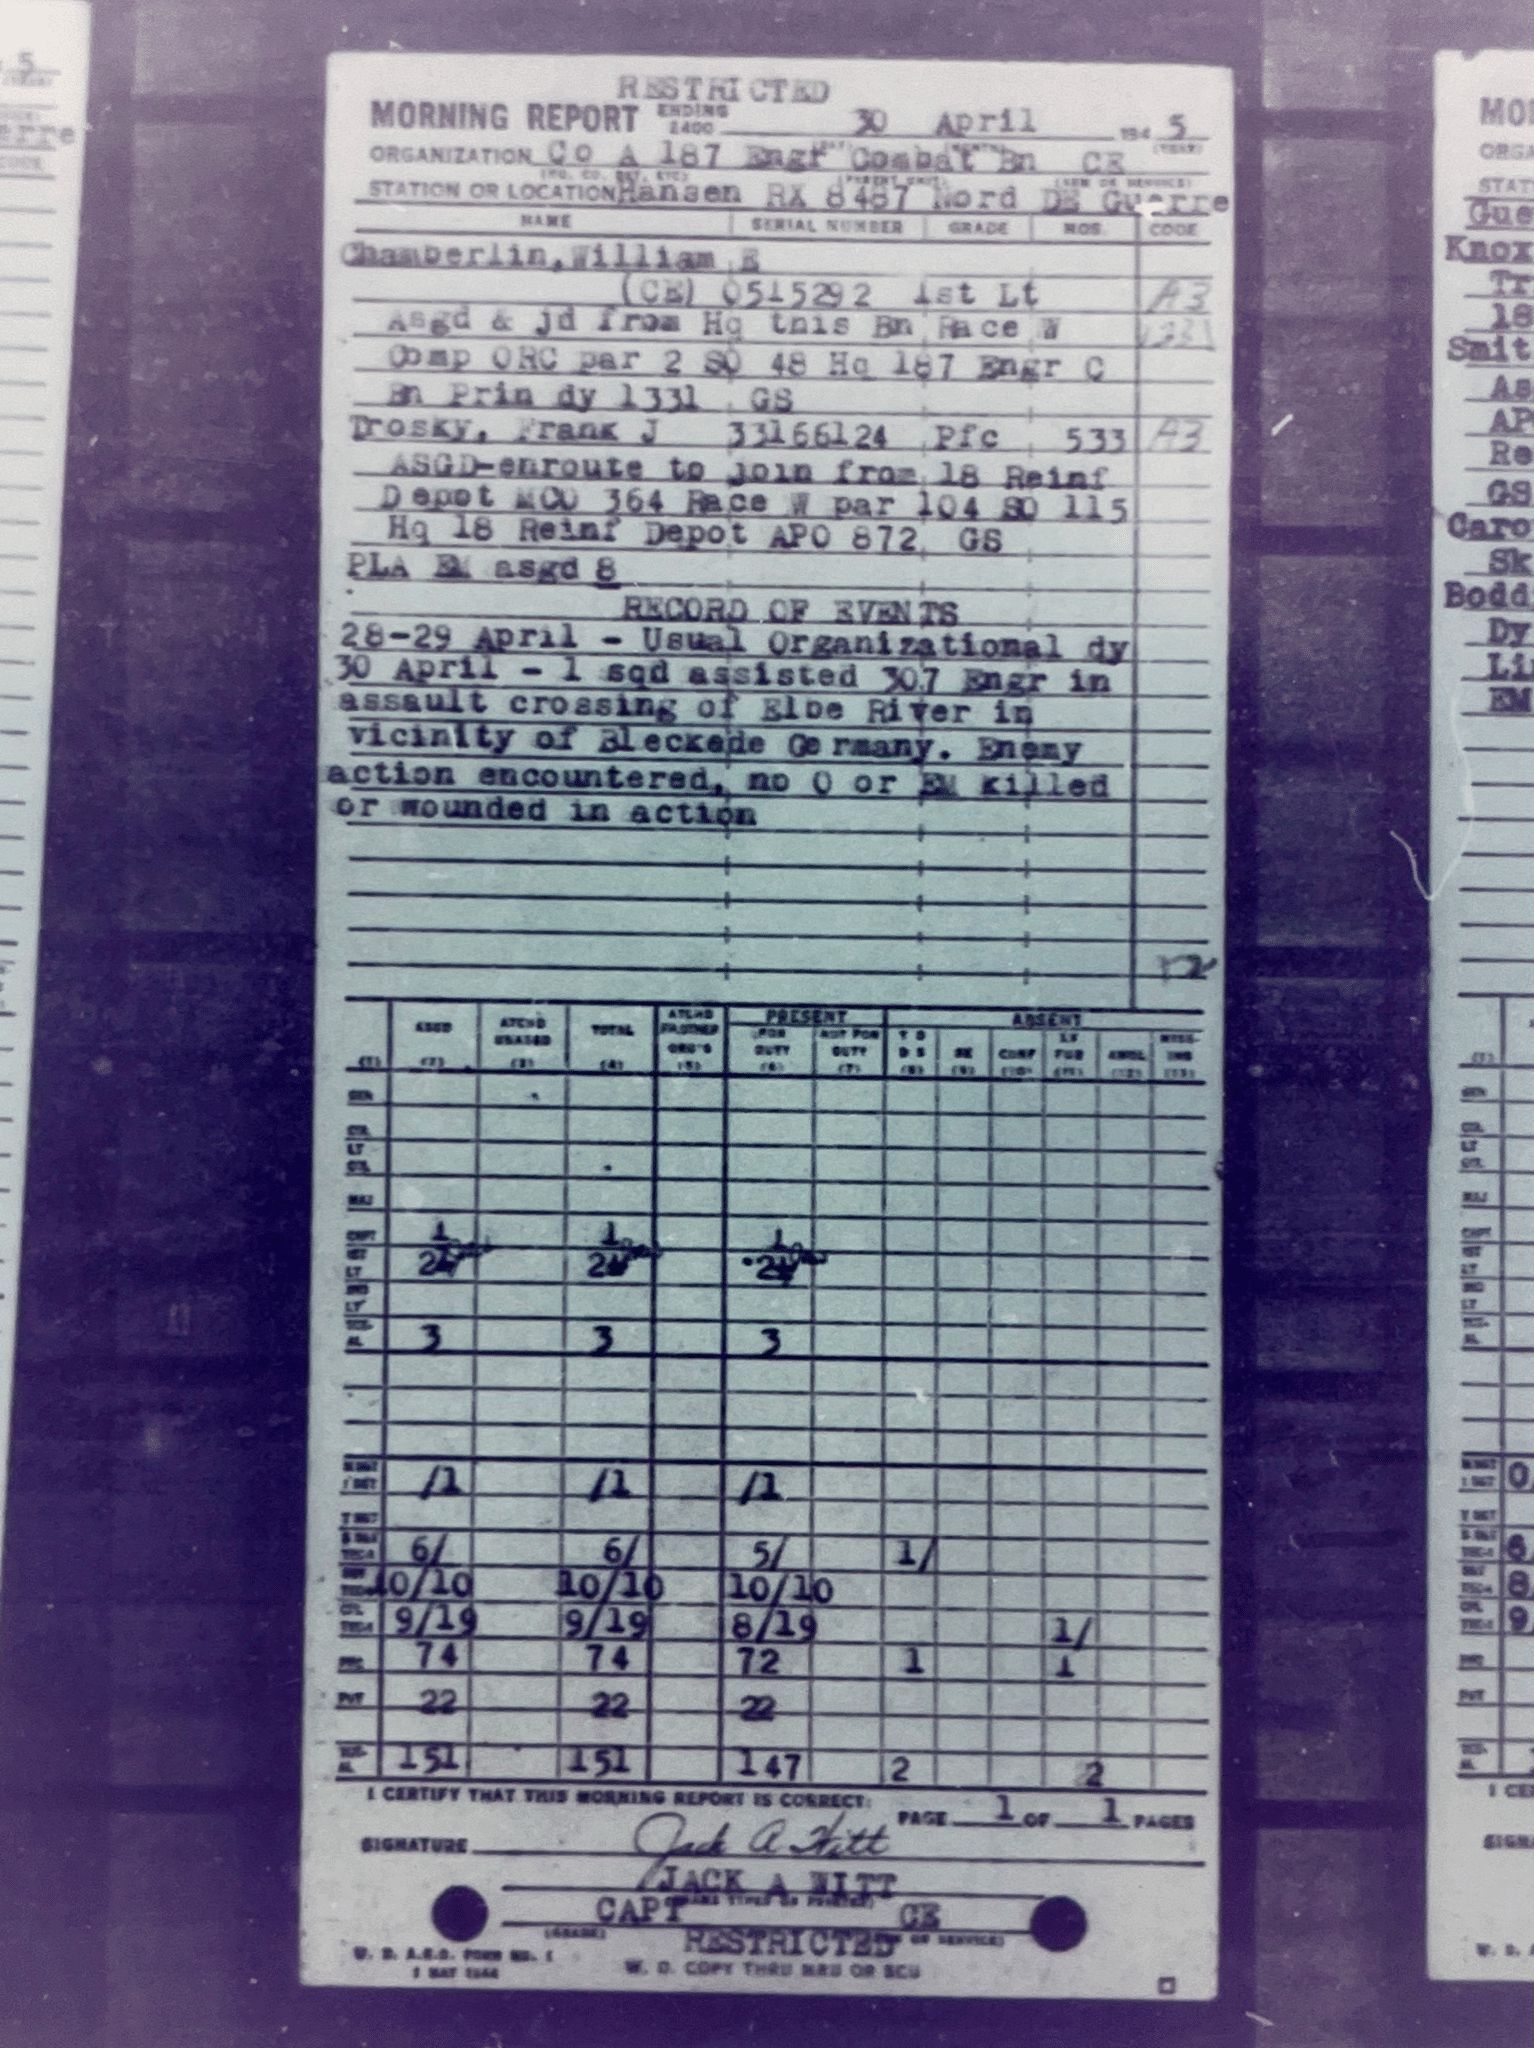 RESTRICTED
MORNING REPORT ENDING 2400 30 April 194 5
ORGANIZATION Co A 187 Engr Combat Bn CE
STATION OR LOCATION Hansen RX 8487 Nord DE Guerre
NAME SERIAL NUMBER GRADE MOS. CODE
Chamberlin, William E
(CE) 0515292 1st Lt A3
Asgd & jd from Hq this Bn Race W
Comp ORC par 2 SO 48 Hq 187 Engr C
Bn Prin dy 1331 GS
Trosky, Frank J 33166124 Pfc 533 A3
ASGD-enroute to join from 18 Reinf
Depot MCO 364 Race W par 104 SO 115
Hq 18 Reinf Depot APO 872 GS
PLA EM asgd 8
RECORD OF EVENTS
28-29 April - Usual Organizational dy
30 April - 1 sqd assisted 307 Engr in
assault crossing of Elbe River in
vicinity of Bleckede Germany. Enemy
action encountered, no O or EM killed
or wounded in action
PRESENT ABSENT
ASGD ATCHD UNASGD TOTAL ATCHD FR OTHER ORG'S FOR DUTY NOT FOR DUTY T D D S SK CONF LV FUR AWOL MISS-ING
(1) (2) (3) (4) (5) (6) (7) (8) (9) (10) (11) (12) (13)
GEN
COL
LT COL
MAJ
CAPT 1 1 1
1ST LT 2 2 2
2ND LT
TOT-AL 3 3 3
M SGT 1 SGT /1 /1 /1
T SGT
S SGT TEC-3 6/ 6/ 5/ 1/
SGT TEC-4 10/10 10/10 10/10
CPL TEC-5 9/19 9/19 8/19 1/
PFC 74 74 72 1 1
PVT 22 22 22
TOT-AL 151 151 147 2 2
I CERTIFY THAT THIS MORNING REPORT IS CORRECT:
PAGE 1 OF 1 PAGES
SIGNATURE Jack A Witt
JACK A WITT
(NAME TYPED OR PRINTED)
CAPT CE
(GRADE) (ARM OR SERVICE)
RESTRICTED
W. D. A.G.O. FORM NO. 1
1 MAY 1944
W. D. COPY THRU MRU OR SCU